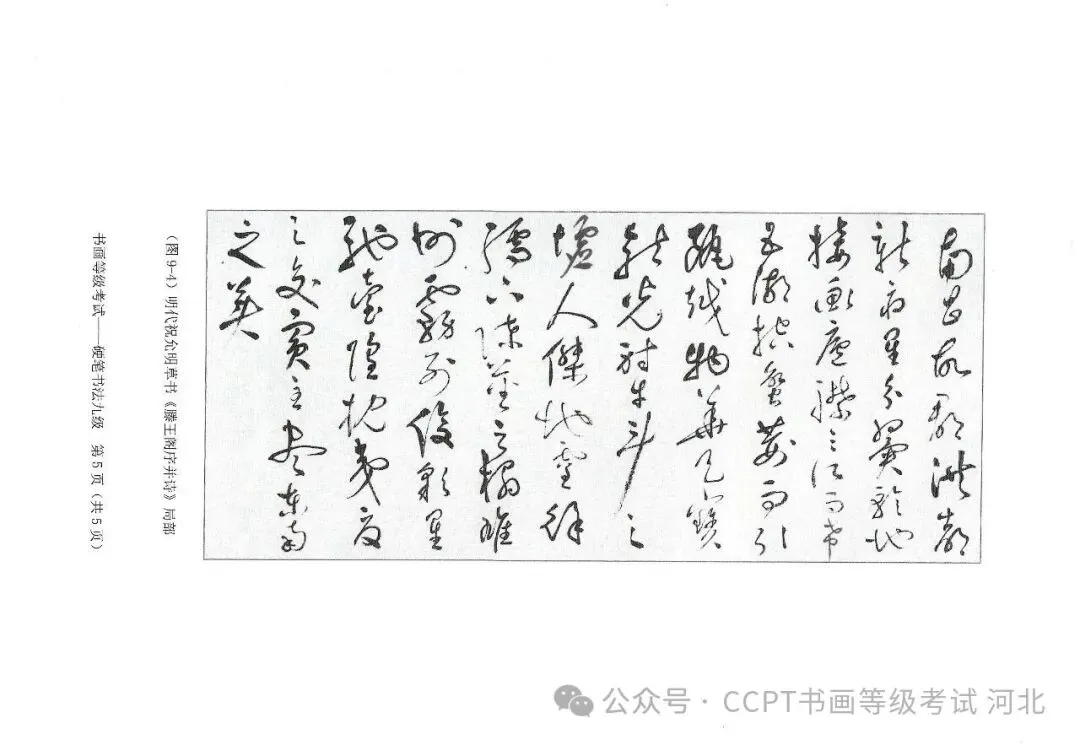 南昌故郡洪都
新府星分翼軫地
接衡廬襟三江而帶
五湖控蠻荊而引
甌越物華天寶
龍光射牛斗之
墟人傑地靈徐
孺下陳蕃之榻雄
州霧列俊彩星
馳臺隍枕夷夏
之交賓主盡東南
之美
（图9-4）明代祝允明草书《滕王阁序并诗》局部
书画等级考试——硬笔书法九级 第5页（共5页）
公众号 · CCPT书画等级考试 河北